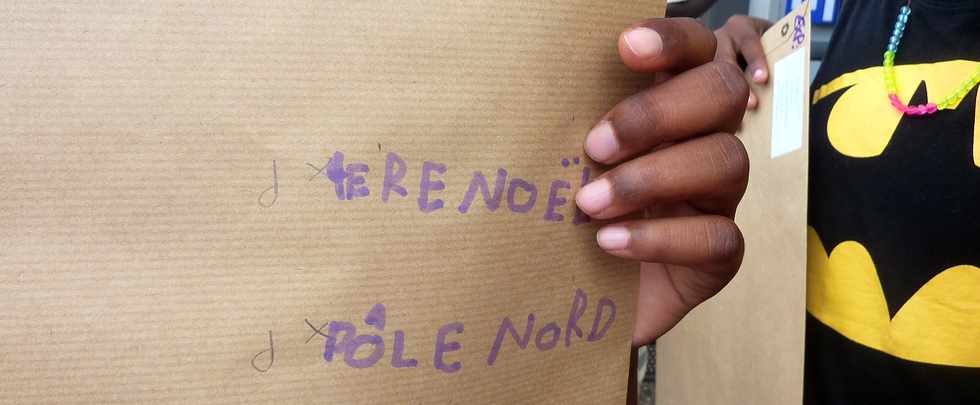 d x PERE NOËL
d x PÔLE NORD
Exp: